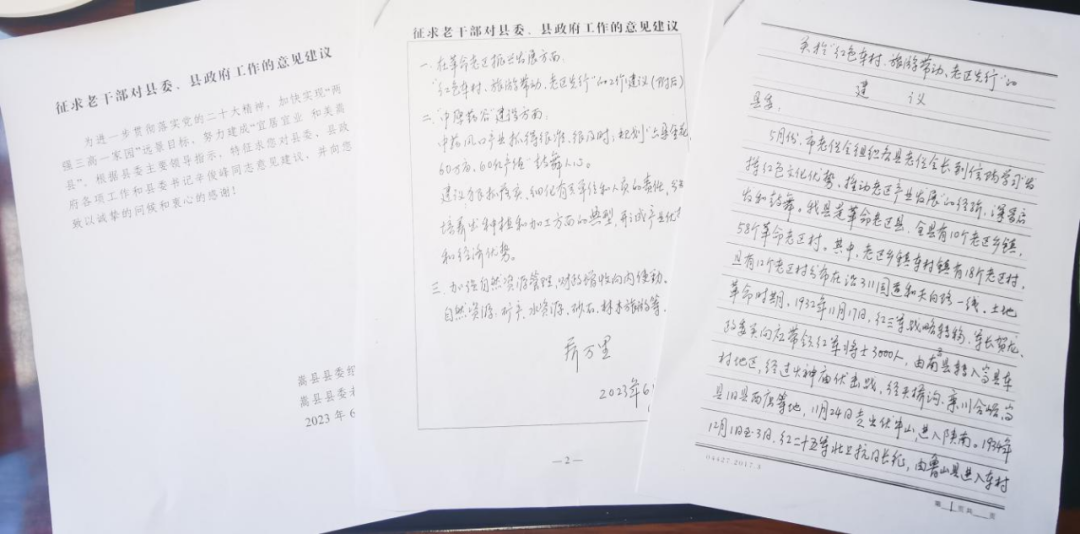 征求老干部对县委、县政府工作的意见建议
为进一步贯彻落实党的二十大精神,加快实现"两
强三高一家园"远景目标,努力建成"宜居宜业 和美嵩
县",根据县委主要领导指示,特征求您对县委、县政
府各项工作和县委书记辛俊峰同志意见建议,并向您
致以诚挚的问候和衷心的感谢!
嵩县县委
嵩县县委老
2023 年 6
征求老干部对县委、县政府工作的意见建议
一、在革命老区振兴发展方面:
"红色车村、旅游带动、老区先行"的工作建议(附后)
二、"中原药谷"建设方面:
中药风口产业抓得很准、很及时,规划"土
60万亩、60亿产值"鼓舞人心。
建议狠抓落实,细化有关单位和人员的责任,
培养出种植和加工方面的典型,形成产业化
和经济优势。
三、加强自然资源管理,财政增收向内使劲。
自然资源:矿产、水资源、砂石、林木旅游等.
万里
2023年6
—2—
关于"红色车村、旅游带动、老区先行"的
建 议
县委:
5月份,市老促会组织各县老促会长到信阳学习"发
挥红色文化优势、推动老区产业发展"的经验,深受启
发和鼓舞。我县是革命老区县,全县有10个老区乡镇,
58个革命老区村。其中,老区乡镇车村镇有18个老区村,
且有12个老区村分布在沿311国道和天白路一线。土地
革命时期,1932年11月17日,红三军战略转移,军长贺龙、
政委关向应带领红军将士3000人,由南召县转入嵩县车
村地区,经过火神庙伏击战,经天桥沟、栾川合峪、嵩
县旧县西店等地,11月24日走出伏牛山,进入陕南。1934年
12月1日至3日,红二十五军北上抗日长征,由鲁山县进入车村
04427.2017.3
第 1 页共 页